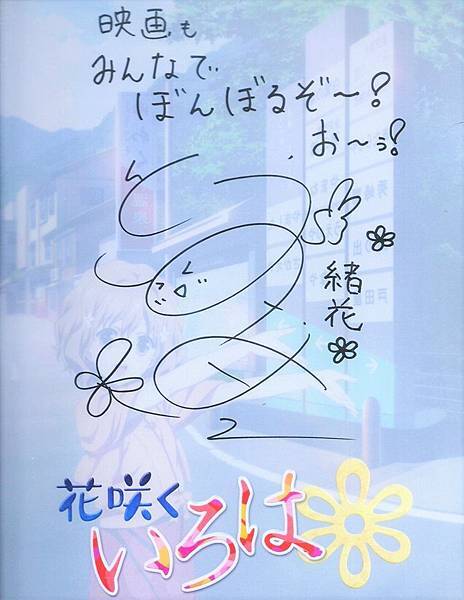 映画も
みんなで
ぼんぼるぞ〜!
お〜ぅ!
緒花
花咲く
いろは